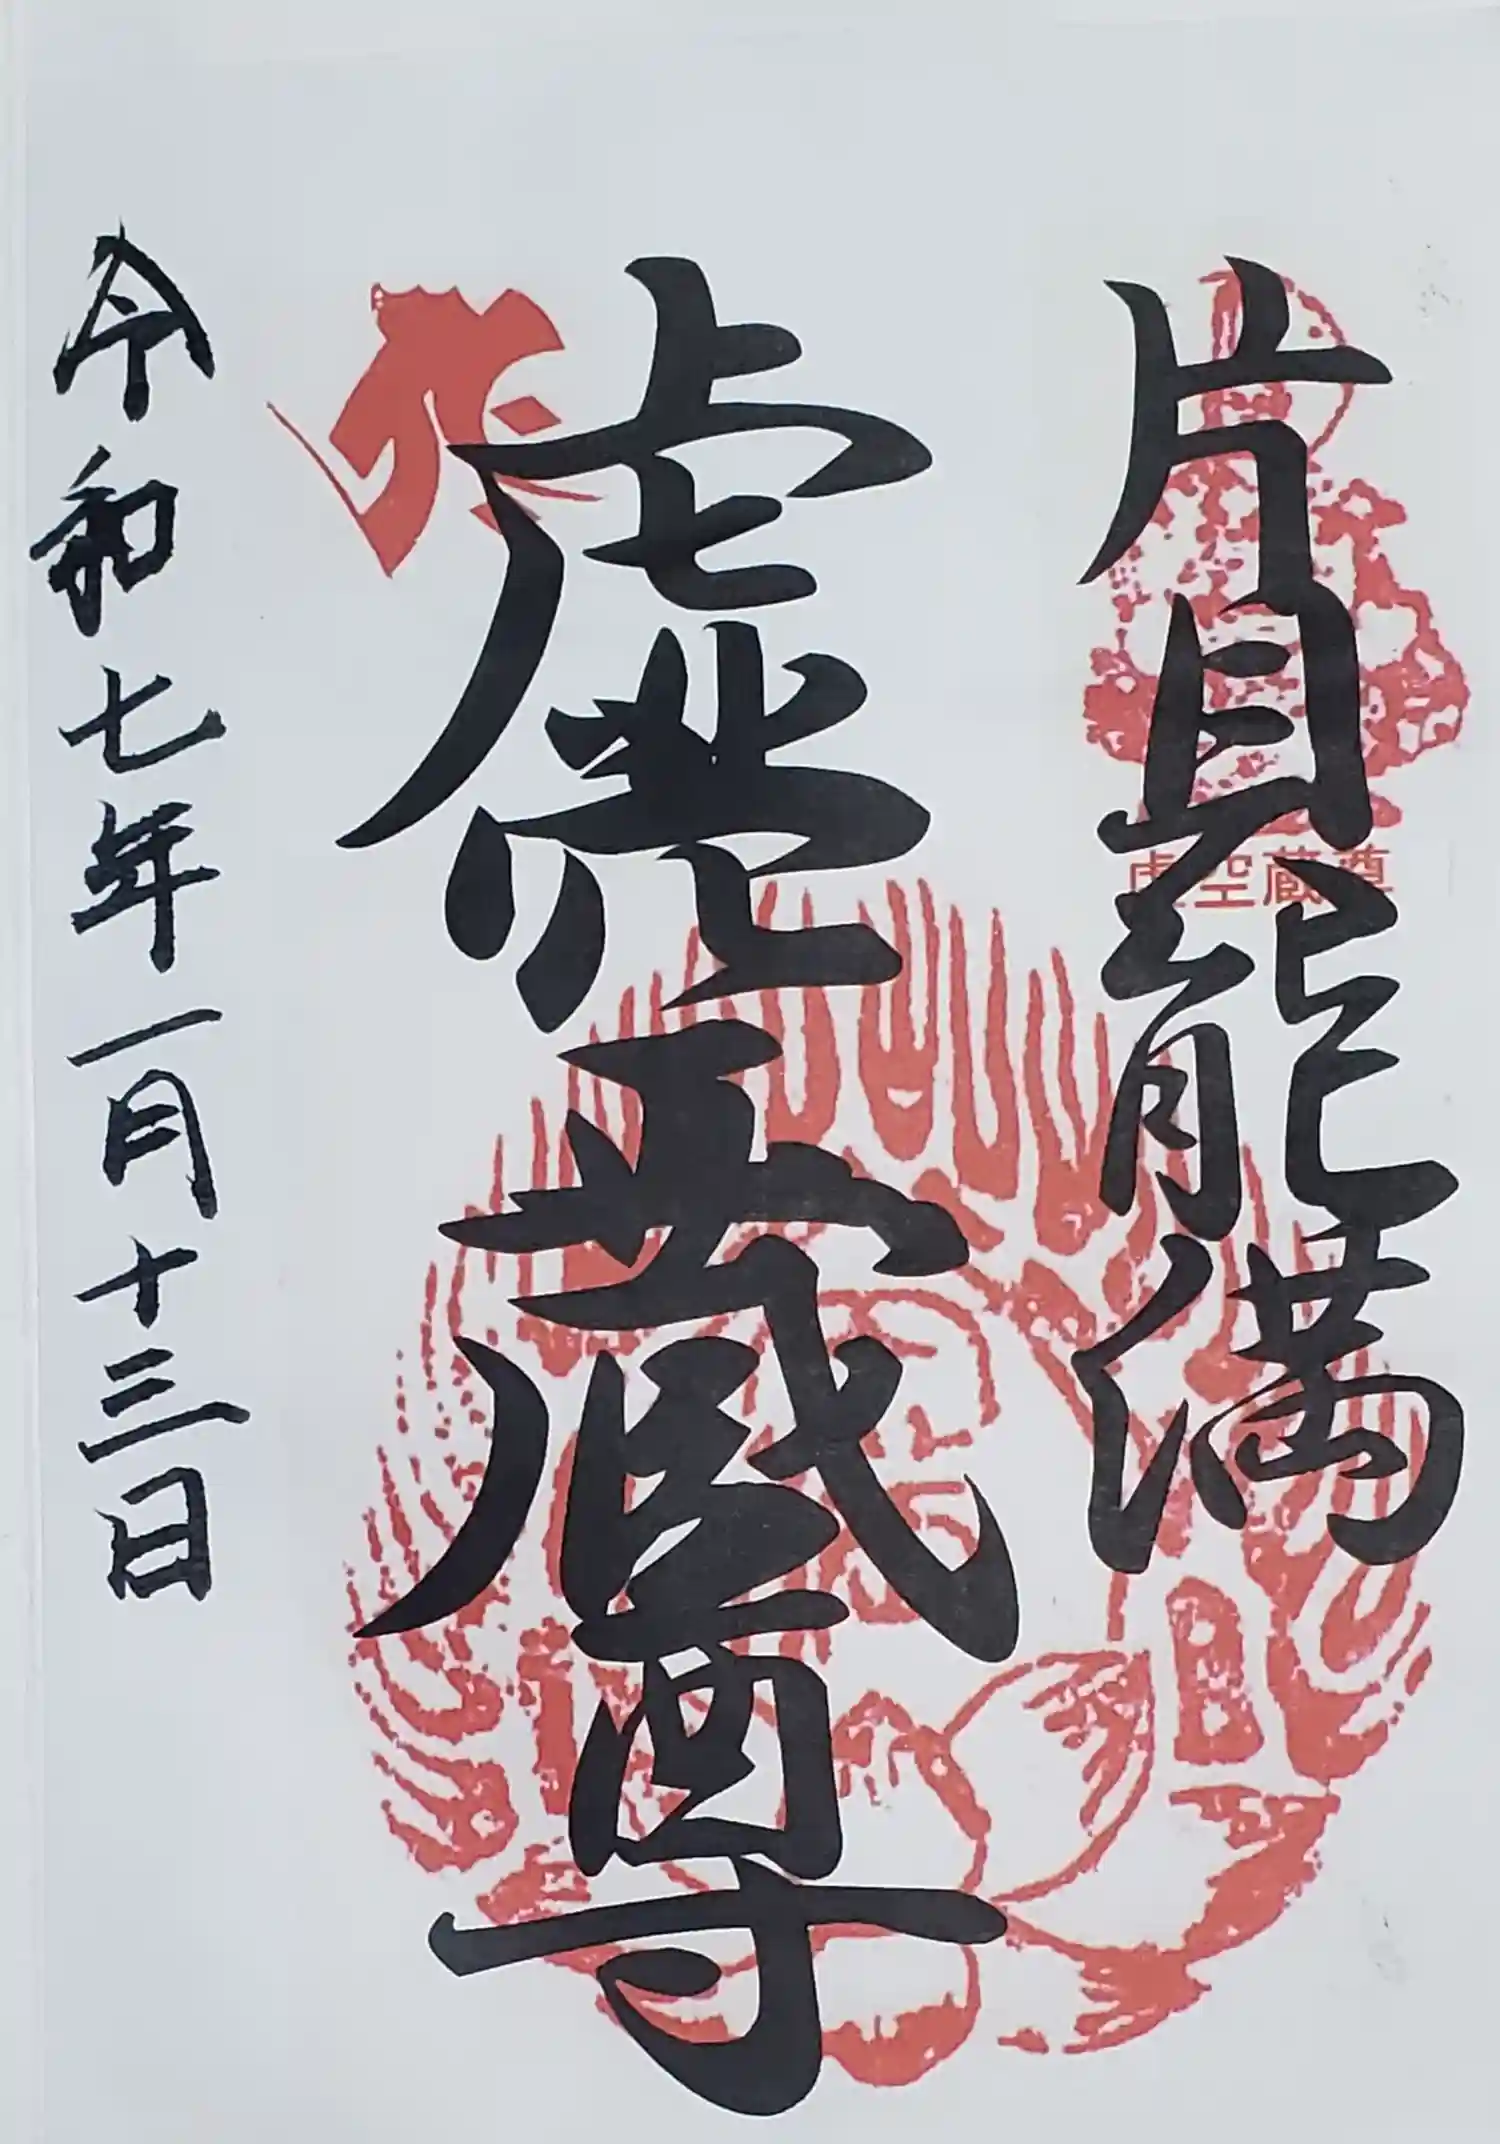 片貝能満
虚空蔵尊
虚空蔵尊
令和七年一月十三日